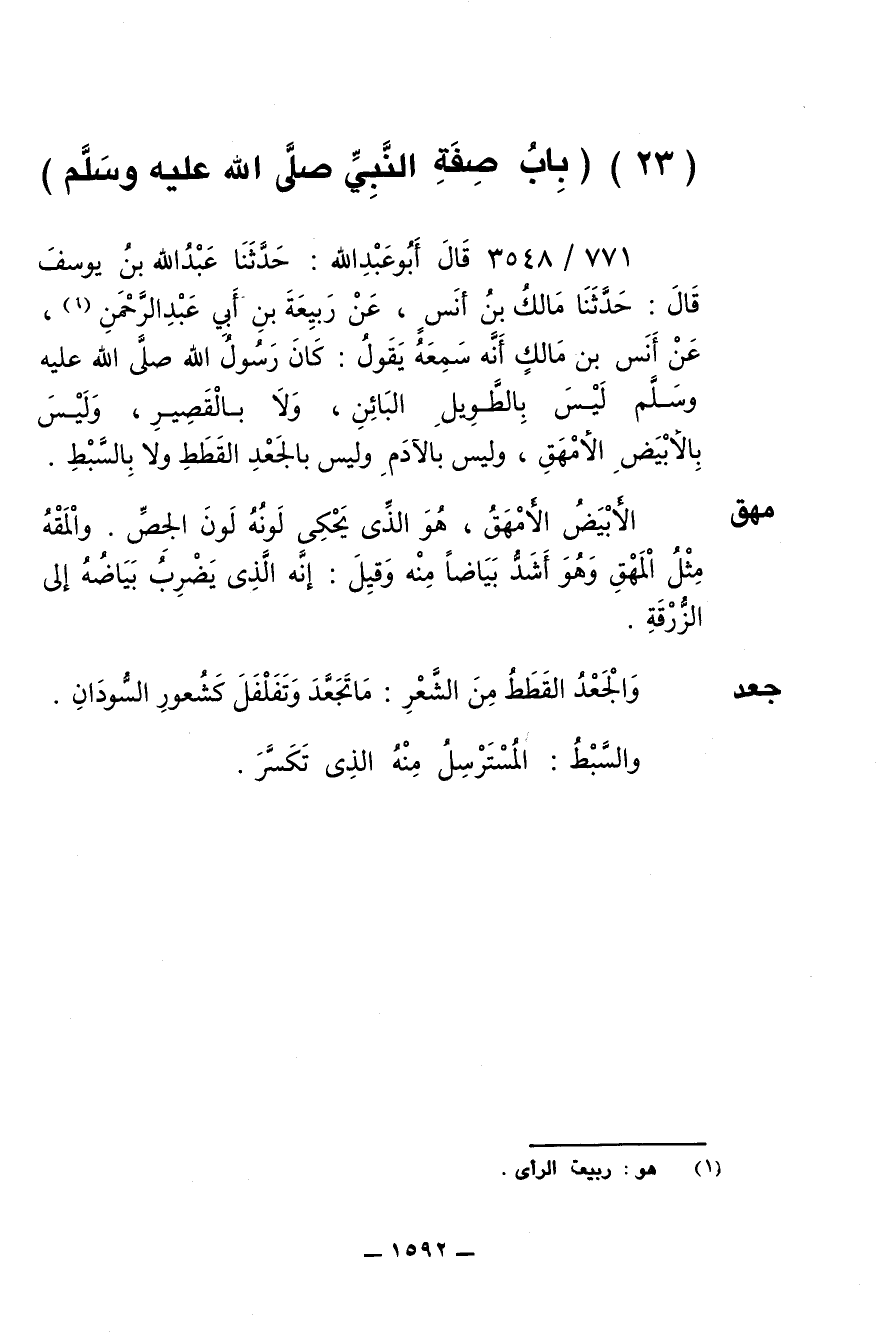 ( ٢٣ ) ( بابُ صِفَةِ النَّبِيِّ صلَّى الله عليه وسَلَّم )
٧٧١ / ٣٥٤٨ قَالَ أَبُوعَبْدِالله : حَدَّثَنَا عَبْدُالله بنُ يوسفَ
قَالَ : حَدَّثَنَا مَالكُ بنُ أنَسٍ ، عَنْ رَبِيعَةَ بنِ أَبِي عَبْدِالرَّحْمَنِ (١) ،
عَنْ أَنَس بن مَالكٍ أَنَّه سَمِعَهُ يَقُولُ : كَانَ رَسُولُ الله صلَّى الله عليه
وسَلَّم لَيْسَ بِالطَّوِيلِ البَائِنِ ، وَلَا بِالْقَصِيرِ ، وَلَيْسَ
بِالأَبْيَضِ الأَمْهَقِ ، وليس بالآدَمِ وليس بالجَعْدِ القَطَطِ ولا بِالسَّبْطِ .
مهق
الأَبْيَضُ الأَمْهَقُ ، هُوَ الذِّى يَحْكِى لَونُهُ لَونَ الجصِّ . والْمَقْهُ
مِثْلُ الْمَهْقِ وَهُوَ أَشَدُّ بَيَاضاً مِنْه وَقيِلَ : إنَّه الَّذِى يَضْرِبُ بَيَاضُهُ إلى
الزُّرْقَةِ .
جعد
وَالْجَعْدُ القَطَطُ مِنَ الشَّعْرِ : مَاتَجَعَّدَ وَتَفَلْفَلَ كَشُعورِ السُّودَانِ .
والسَّبْطُ : الْمُسْتَرْسِلُ مِنْهُ الذِى تَكَسَّرَ .
(١) هو : ربيعة الرأى .
– ١٥٩٢ –